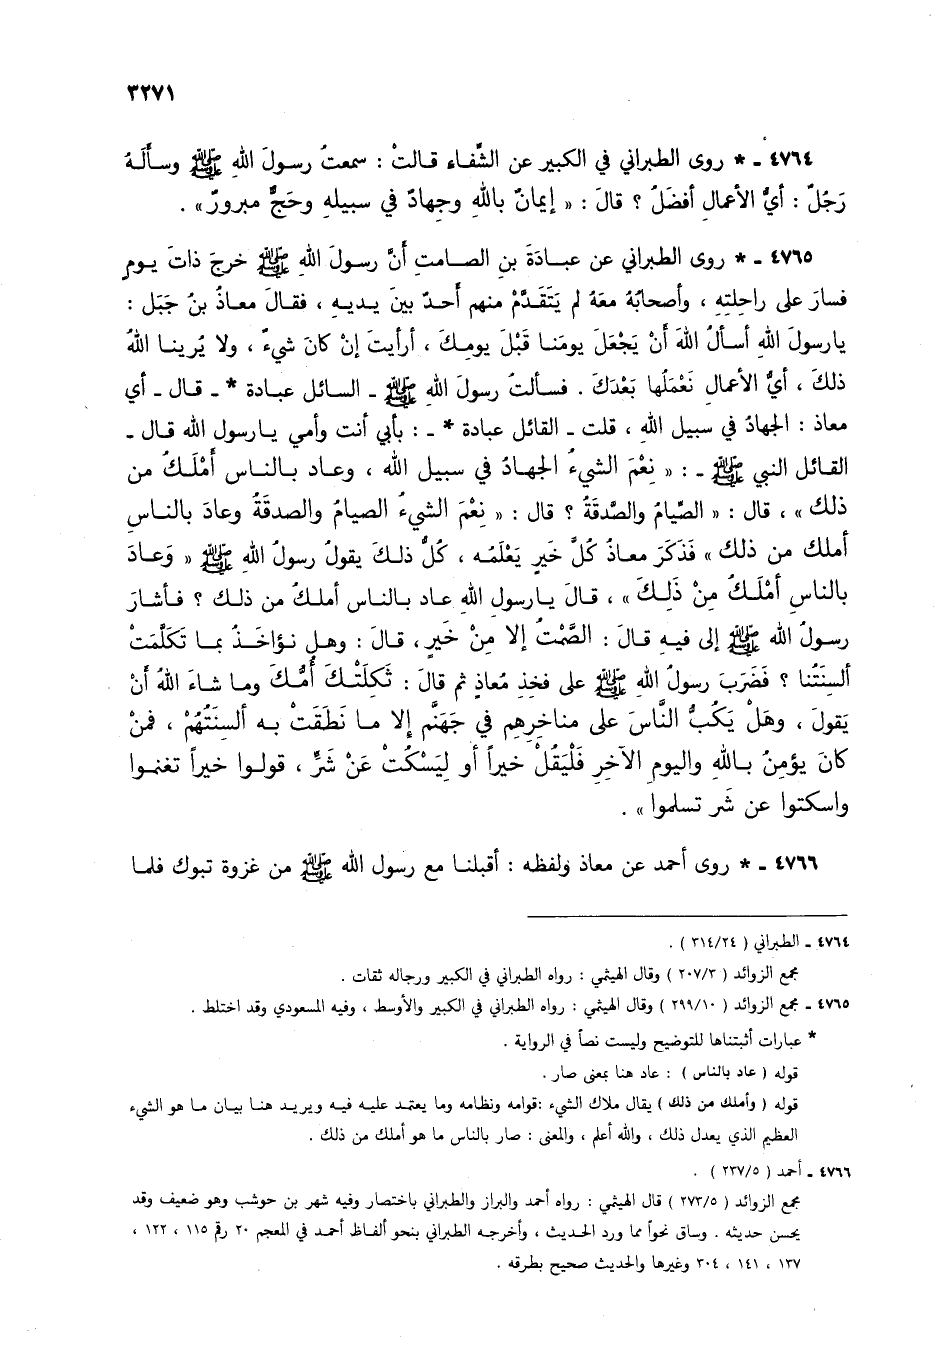 ٣٢٧١
٤٧٦٤ ـ * روى الطبراني في الكبير عن الشَّفاء قالتْ : سمعتُ رسولَ اللهِ ﷺ وسألَهُ
رَجُلٌ : أيُّ الأعمالِ أفضَلُ ؟ قالَ : « إيمانٌ باللهِ وجهادٌ في سبيلهِ وحَجٌّ مبرورٌ » .
٤٧٦٥ ـ * روى الطبراني عن عبادَةَ بنِ الصامتِ أنَّ رسولَ اللهِ ﷺ خرجَ ذاتَ يومٍ
فسارَ على راحلتِهِ ، وأصحابُهُ معَهُ لم يَتَقَدَّمْ منهم أحدٌ بينَ يديهِ ، فقالَ معاذُ بنُ جَبَل :
يارسولَ اللهِ أسألُ اللهَ أنْ يَجْعَلَ يومَنا قَبْلَ يومِكَ ، أرأيتَ إنْ كانَ شيءٌ ، ولا يُرينا اللهُ
ذلكَ ، أيُّ الأعمالِ نَعْمَلُها بَعْدَكَ . فسألتُ رسولَ اللهِ ﷺ ـ السائل عبادة * ـ قال ـ أي
معاذ : الجهادُ في سبيل الله ، قلت ـ القائل عبادة * ـ : بأبي أنت وأمي يارسول الله قال ـ
القائل النبي ﷺ ـ : « نِعْمَ الشيءُ الجهادُ في سبيل الله ، وعاد بالناس أمْلَكُ من
ذلك » ، قال : « الصِّيامُ والصَّدقَةُ ؟ قال : « نِعْمَ الشيءُ الصيامُ والصدقَةُ وعادَ بالناسِ
أملك من ذلك » فَذَكَرَ معاذُ كُلَّ خَيرٍ يَعْلَمُه ، كُلُّ ذلكَ يقولُ رسولُ اللهِ ﷺ « وَعادَ
بالناسِ أمْلَكُ مِنْ ذَلِكَ » ، قالَ يارسولِ اللهِ عاد بالناس أملكُ من ذلك ؟ فأشارَ
رسولُ اللهِ ﷺ إلى فيهِ قالَ : الصَّمْتُ إلا مِنْ خَيرٍ ، قالَ : وهلِ نؤاخَذُ بما تَكَلَّمَتْ
ألسِنَتُنا ؟ فَضَرَبَ رسولُ اللهِ ﷺ على فخِذِ مُعاذٍ ثم قالَ : ثَكِلَتْكَ أُمُّكَ وما شاءَ اللهُ أنْ
يَقولَ ، وهَلْ يَكُبُّ النَّاسَ على مناخِرِهِم في جَهَنَّم إلا ما نَطَقَتْ به ألسِنَتُهُمْ ، فمنْ
كانَ يؤمِنُ باللهِ واليومِ الآخرِ فَلْيَقُلْ خيراً أو لِيَسْكُتْ عَنْ شَرٍّ ، قولوا خيراً تغنموا
واسكتوا عن شَر تسلموا » .
٤٧٦٦ ـ * روى أحمد عن معاذ ولفظه : أقبلنا مع رسول الله ﷺ من غزوة تبوك فلما
٤٧٦٤ ـ الطبراني ( ٣١٤/٢٤ ) .
مجمع الزوائد ( ٢٠٧/٣ ) وقال الهيثمي : رواه الطبراني في الكبير ورجاله ثقات .
٤٧٦٥ ـ مجمع الزوائد ( ٢٩٩/١٠ ) وقال الهيثمي : رواه الطبراني في الكبير والأوسط ، وفيه المسعودي وقد اختلط .
* عبارات أثبتناها للتوضيح وليست نصاً في الرواية .
قوله ( عاد بالناس ) : عاد هنا بمعنى صار .
قوله ( وأملك من ذلك ) يقال ملاك الشيء :قوامه ونظامه وما يعتمد عليه فيه ويريد هنا بيان ما هو الشيء
العظيم الذي يعدل ذلك ، والله أعلم ، والمعنى : صار بالناس ما هو أملك من ذلك .
٤٧٦٦ ـ أحمد ( ٢٣٧/٥ ) .
مجمع الزوائد ( ٢٧٣/٥ ) قال الهيثمي : رواه أحمد والبزار والطبراني باختصار وفيه شهر بن حوشب وهو ضعيف وقد
يحسن حديثه . وساق نحواً مما ورد الحديث ، وأخرجه الطبراني بنحو ألفاظ أحمد في المعجم ٢٠ رقم ١١٥ ، ١٢٢ ،
١٣٧ ، ١٤١ ، ٣٠٤ وغيرها والحديث صحيح بطرقه .